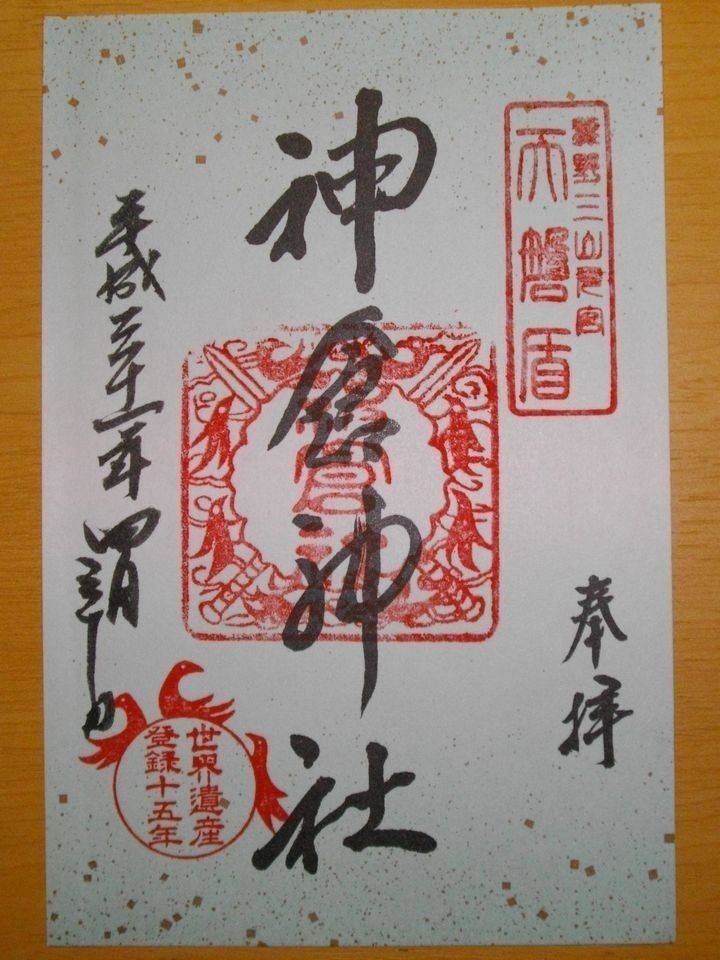 熊野三山元宮
天磐盾
奉拝
神倉神社
平成三十一年四月三十日
世界遺産
登録十五年